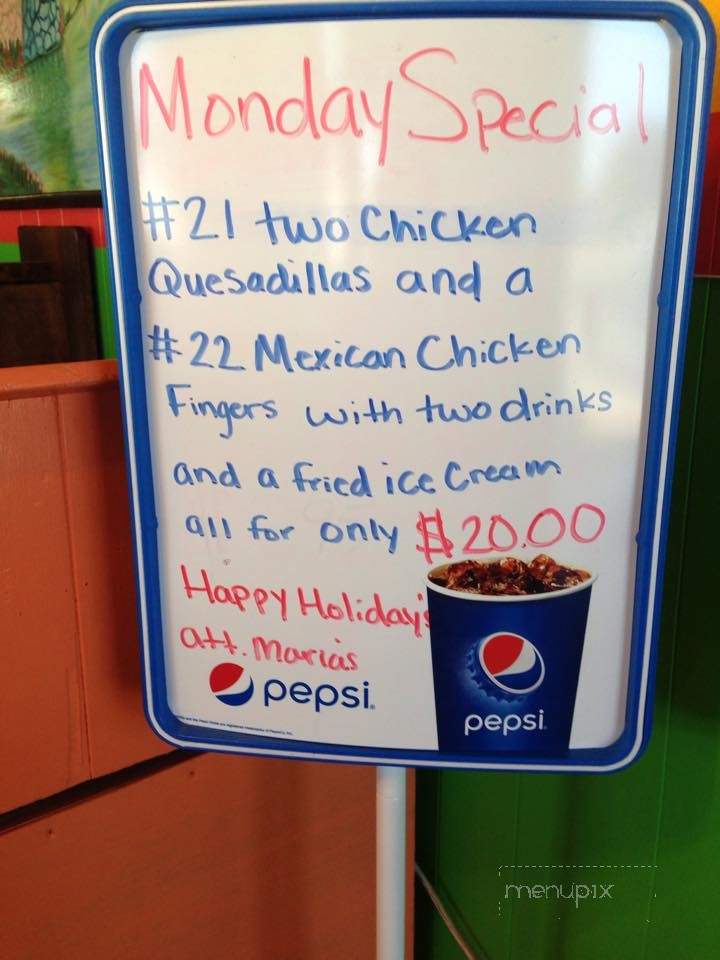 Monday Special
#21 two Chicken
Quesadillas and a
#22 Mexican Chicken
Fingers with two drinks
and a fried ice Cream
all for only $20.00
Happy Holiday's
att. Maria's
pepsi
pepsi
menupix